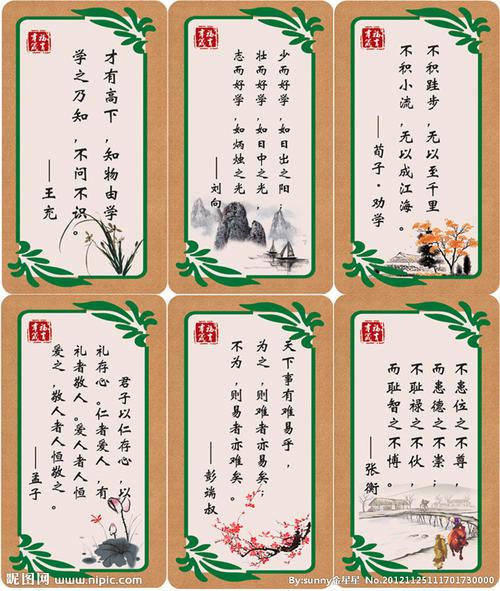 才有高下，知物由学
学之乃知，不问不识。
——王充
少而好学，如日出之阳；
壮而好学，如日中之光，
志而好学，如炳烛之光。
——刘向
不积跬步，无以至千里
不积小流，无以成江海。
——荀子·劝学
君子以仁存心，以
礼存心。仁者爱人，有
礼者敬人。爱人者人恒
爱之，敬人者人恒敬之。
——孟子
天下事有难易乎，
为之，则难者亦易矣；
不为，则易者亦难矣。
——彭端叔
不患位之不尊，
而患德之不崇；
不耻禄之不伙，
而耻智之不博。
——张衡
昵图网 www.nipic.com
By:sunny金星星 No.20121125111701730000